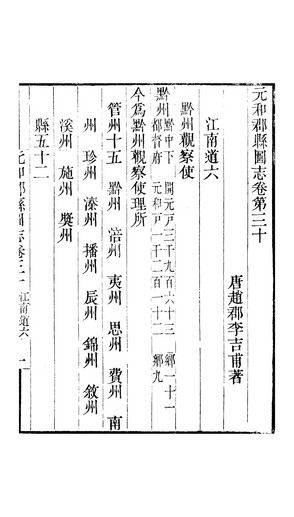 元和郡縣圖志卷第三十
唐趙郡李吉甫著
江南道六
黔州觀察使
黔州 黔中下都督府 開元戸三千九百六十三 鄉一十一 元和戸一千二百一十二 鄉九
今爲黔州觀察使理所
管州十五 黔州 涪州 夷州 思州 費州 南
州 珍州 溱州 播州 辰州 錦州 敘州
溪州 施州 奬州
縣五十二
元和郡縣圖志卷三十 江南道六 一